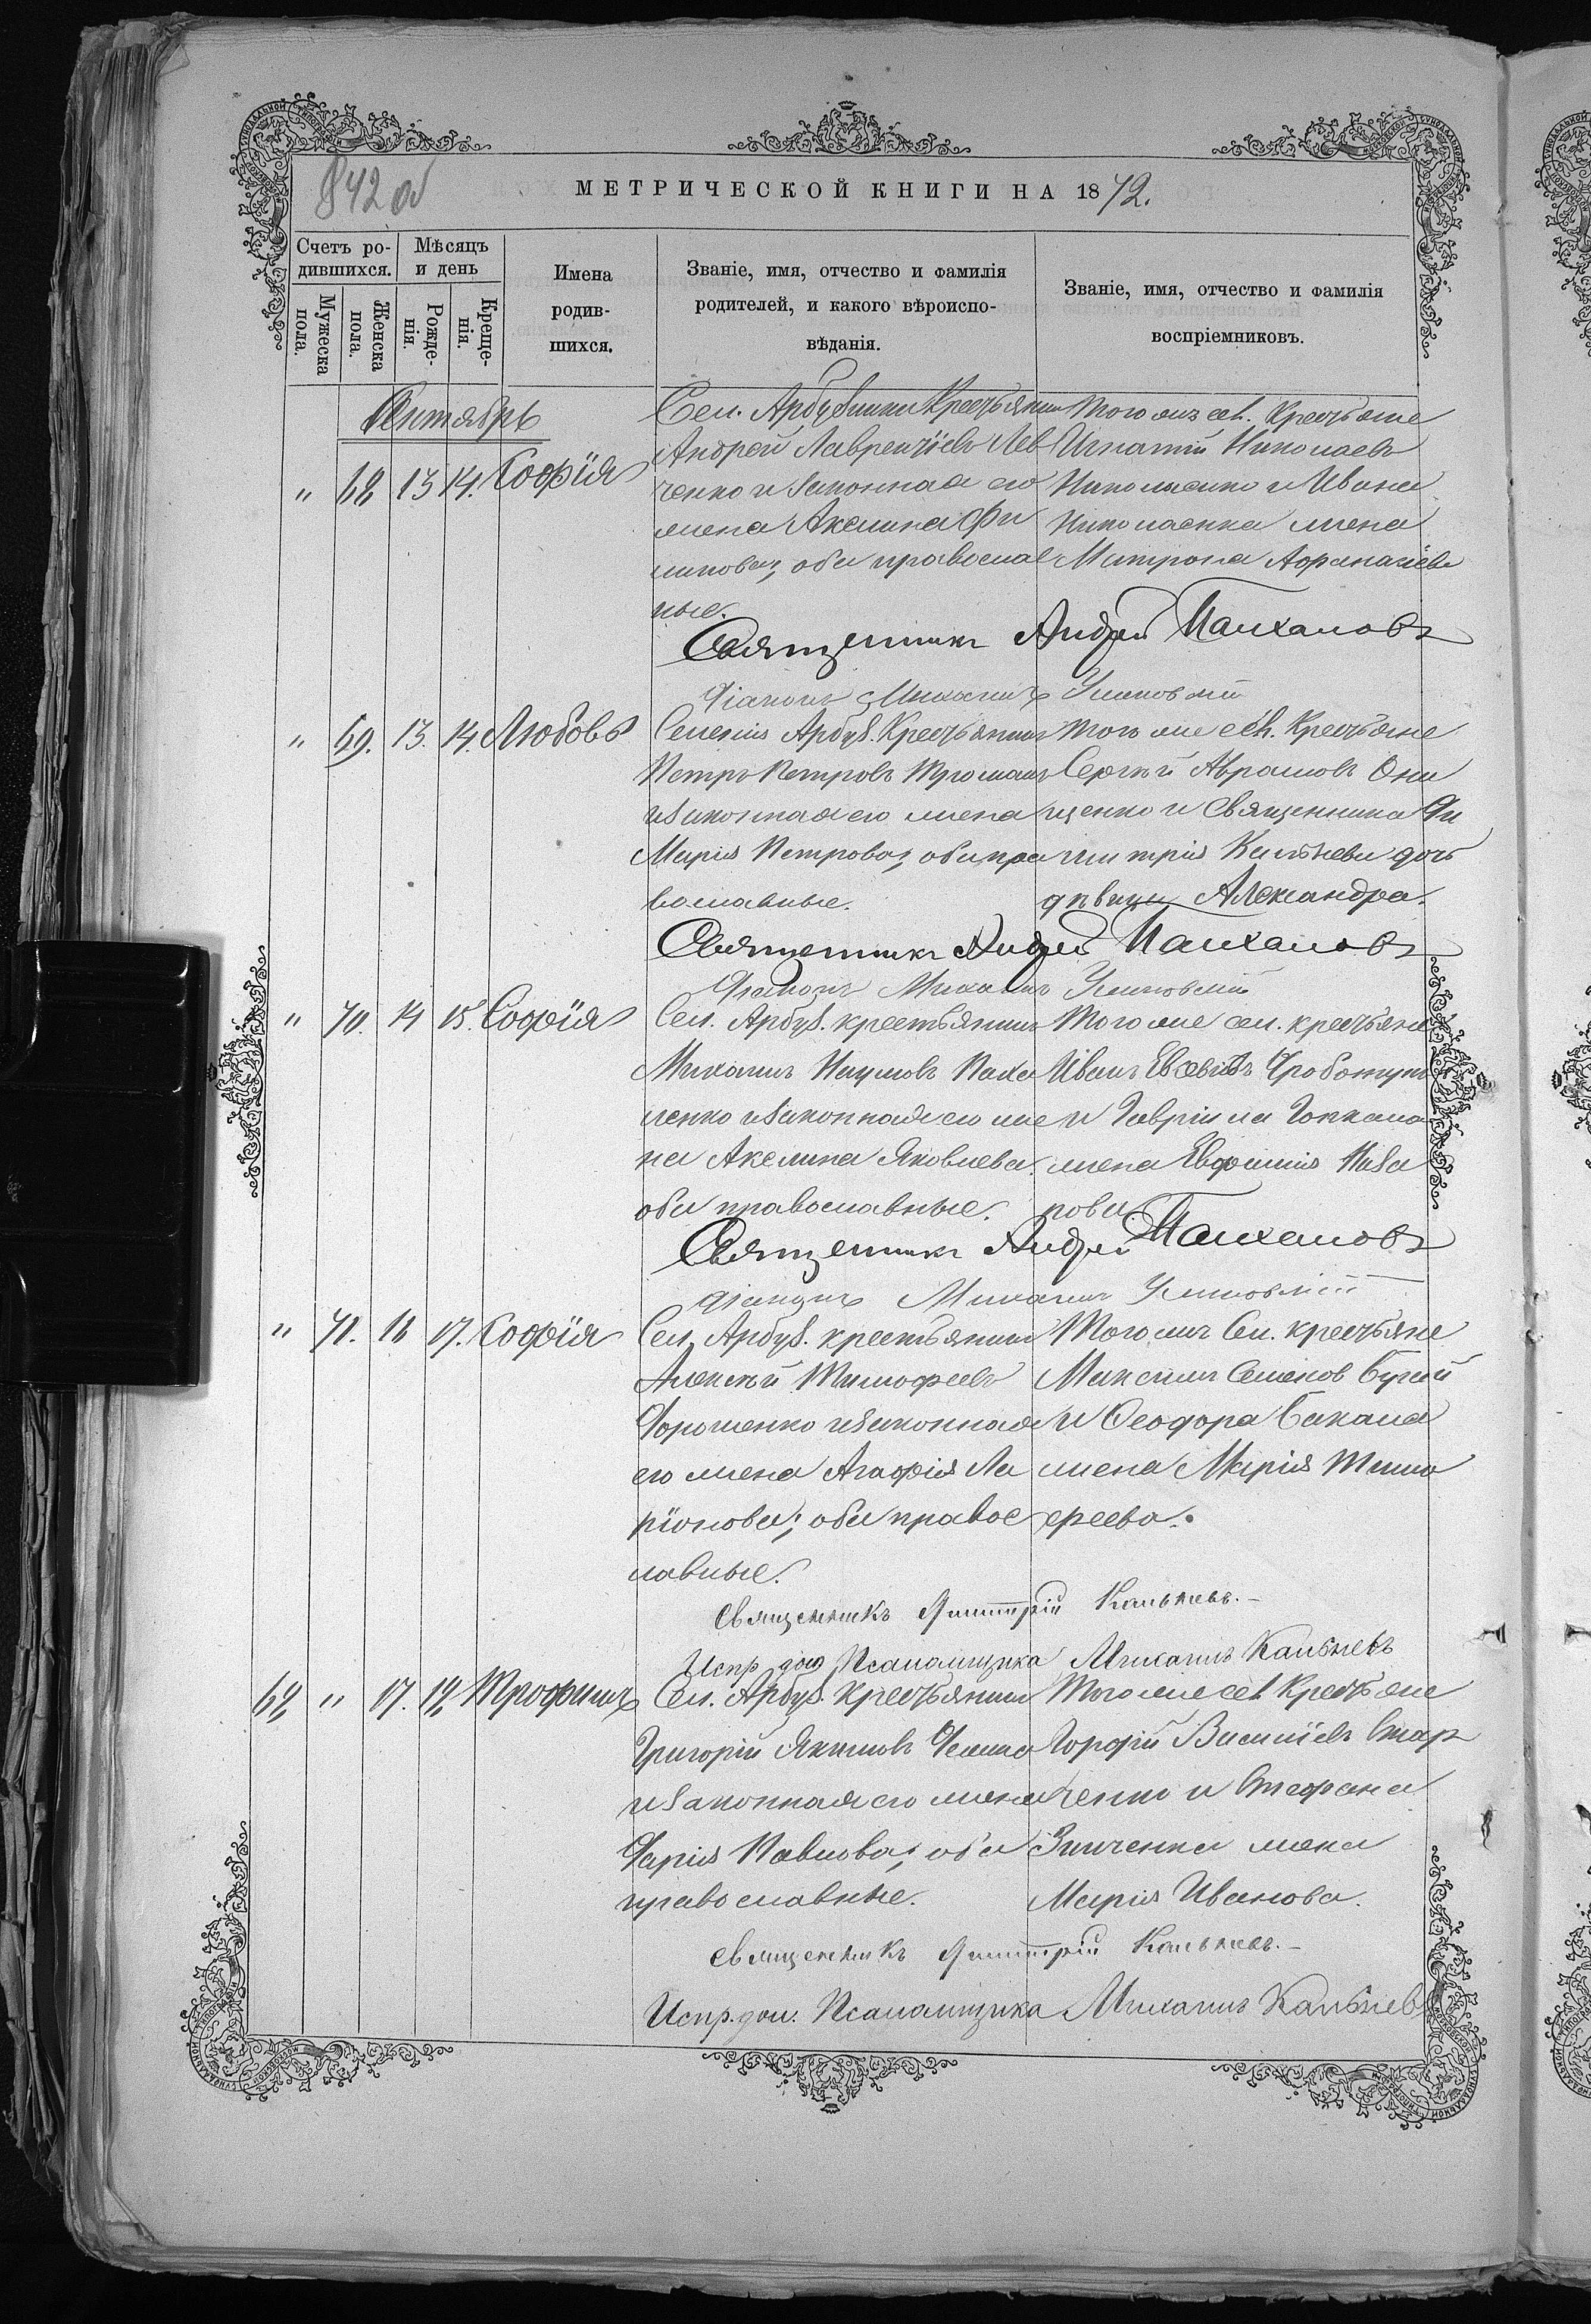 842 об
МЕТРИЧЕСКОЙ КНИГИ НА 1872.
Счетъ ро-
дившихся.
Мужеска
пола.
Женска
пола.
Мѣсяцъ
и день
Рожде-
нія.
Креще-
нія.
Имена
родив-
шихся.
Званіе, имя, отчество и фамилія
родителей, и какого вѣроиспо-
вѣданія.
Званіе, имя, отчество и фамилія
воспріемниковъ.
Сентябрь
" 68 13 14. Софія
Сел. Арбузинки Крестьянинъ
Андрей Лаврентіевъ Лев
ченко и законная его
жена Акилина Фи
липова; оба православ
ные.
того же сел. Крестьяне
Игнатій Николаевъ
Николаенко и Ивана
Николаенка жена
Матрона Афанасіева
Священникъ Андрей
Діаконъ Михаилъ
" 69. 13. 14. Любовь
Селенія Арбуз. Крестьянинъ
Петръ Петровъ
и законная его жена
Марія Петрова; оба пра
вославные.
того же сел. Крестьяне
Сергѣй Аврамовъ Они
щенко и Священника Ди
митрія Кальнева дочь
дѣвица Александра.
Священникъ Андрей
Діаконъ Михаилъ
" 70. 14 15. Софія
Сел. Арбуз. крестьянинъ
Михаилъ Наумовъ Пахо
ленко и законная его же
на Акилина Яковлева
оба православные.
Того же сел. крестьяне
Иванъ
и Гавріила
жена Евфимія Наза
рова
Священникъ Андрей
діаконъ Михаилъ
" 71. 16 17. Софія
Сел. Арбуз. крестьянинъ
Алексѣй Тимофеевъ
Дорошенко и законная
его жена Агафія Ла
ріонова; оба правос
лавные.
Того же Сел. крестьяне
Максимъ Семенов
и Феодора Бакала
жена Марія Тимо
феева.
священникъ Димитрій Кальневъ.-
Испр. дол. Псаломщика Михаилъ Кальневъ
62 " 17. 19 Трофимъ
Сел. Арбуз. Крестьянинъ
Григорій Якимовъ
и законная его жена
Дарія Павлова; оба
православные.
Того же сел. Крестьяне
Гордій Василіевъ Стар
ченко и Стефана
Зинченка жена
Марія Иванова.
священникъ Димитрій Кальневъ.-
Испр. дол. Псаломщика Михаилъ Кальневъ